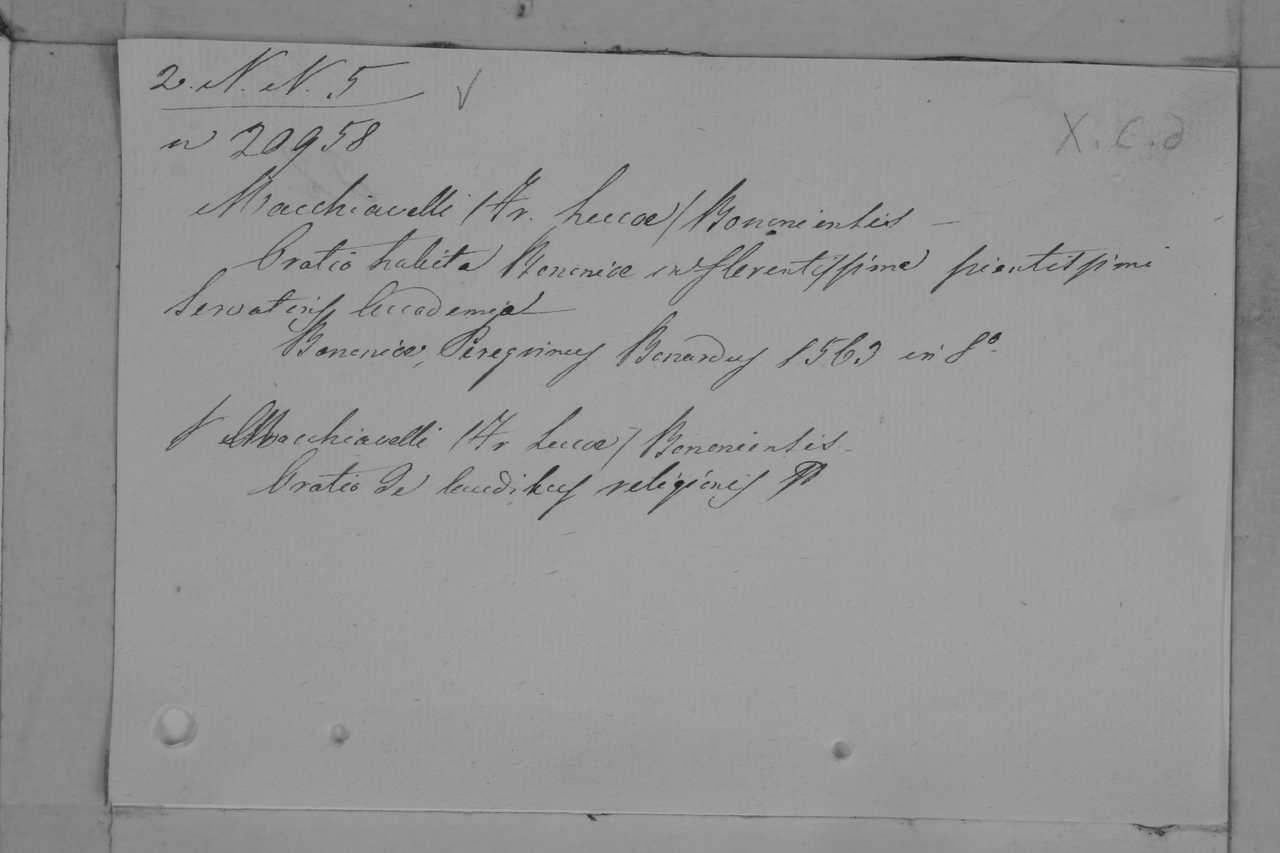 2. N. N. 5
X. C. d
n 20958
Macchiavelli (Fr. Lucae) Bononiensis –
Oratio habita Bononiae in florentissima pientissimi
Servatoris Accademia
Bononiae, Peregrinus Bonardus 1563 in 8º
Macchiavelli (Fr Lucae) Bononiensis –
Oratio de laudibus religionis